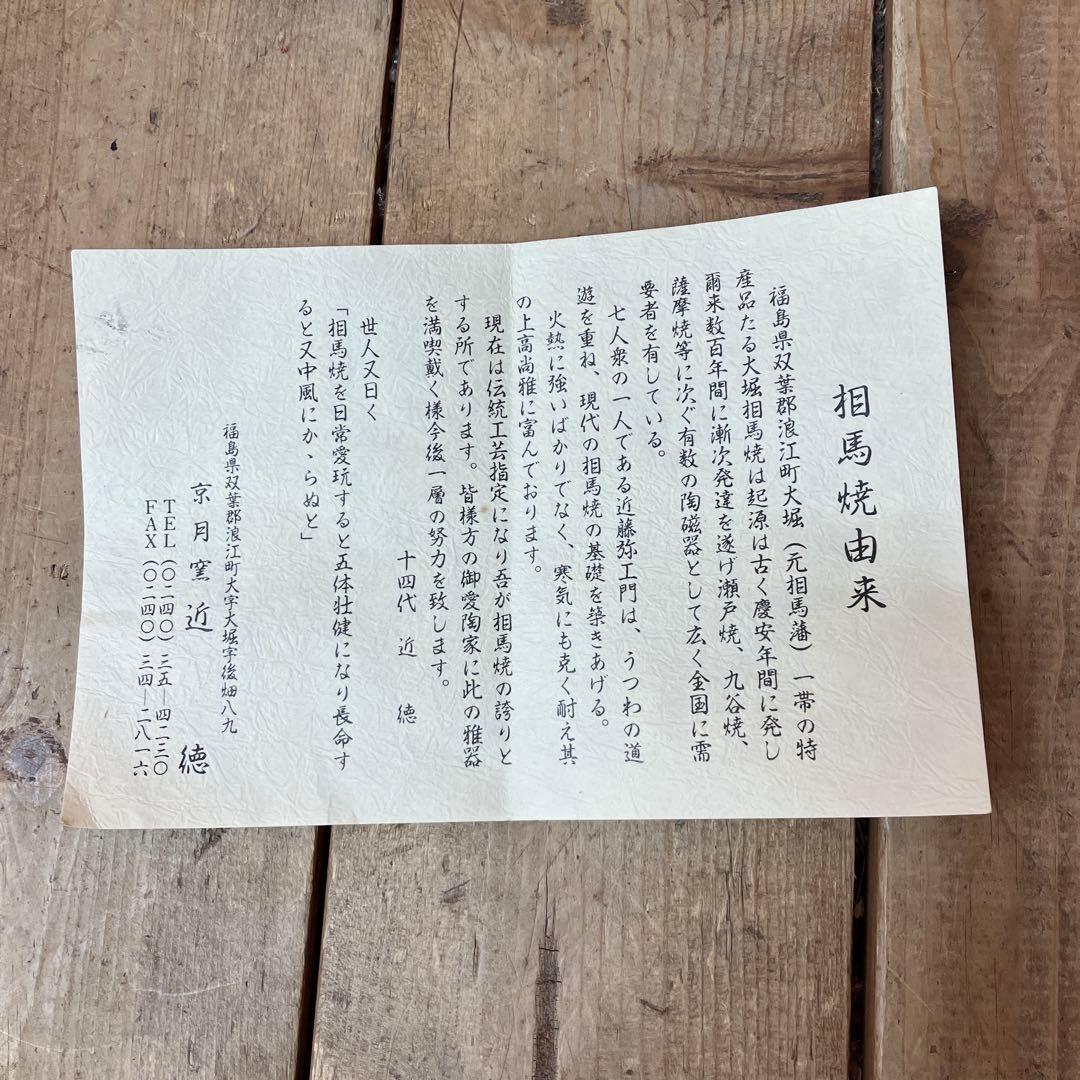 相馬焼由来
福島県双葉郡浪江町大堀（元相馬藩）一帯の特
産品たる大堀相馬焼は起源は古く慶安年間に発し
爾来数百年間に漸次発達を遂げ瀬戸焼、九谷焼、
薩摩焼等に次ぐ有数の陶磁器として広く全国に需
要者を有している。
七人衆の一人である近藤弥工門は、うつわの道
遊を重ね、現代の相馬焼の基礎を築きあげる。
火熱に強いばかりでなく、寒気にも克く耐え其
の上高尚雅に富んでおります。
現在は伝統工芸指定になり吾が相馬焼の誇りと
する所であります。皆様方の御愛陶家に此の雅器
を満喫戴く様今後一層の努力を致します。
十四代 近 徳
世人又曰く
「相馬焼を日常愛玩すると五体壮健になり長命す
ると又中風にかゝらぬと」
福島県双葉郡浪江町大字大堀字後畑八九
京月窯 近 徳
TEL（〇二四〇）三五―四二三〇
FAX（〇二四〇）三四―二八一六